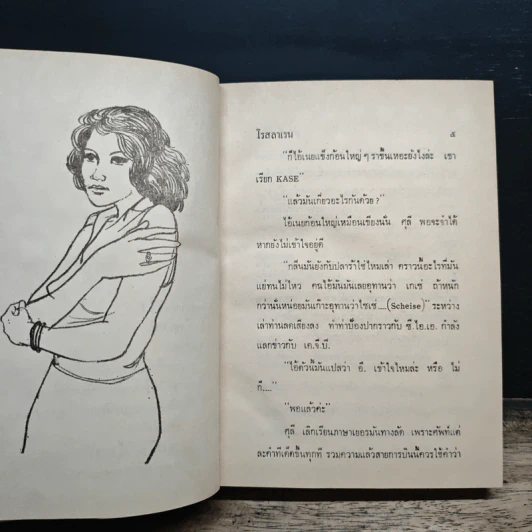 โรสลาเรน ๕
"ก็ไอ้เนยแข็งก้อนใหญ่ ๆ ราขึ้นเหอะยังไงล่ะ เขา
เรียก KASE"
"แล้วมันเกี่ยวอะไรกันด้วย?"
ไอ้เนยก้อนใหญ่เหมือนเขียงนั่น ศุลี พอจะจำได้
หากยังไม่เข้าใจอยู่ดี
"กลิ่นมันยังกับปลาร้าใช่ไหมเล่า คราวนี้อะไรที่มัน
แย่ทนไม่ไหว คนไอ้มันมันเลยอุทานว่า เกเซ่ ถ้าหนัก
กว่านั้นหน่อยมันก็จะอุทานว่าไชเซ่....(Scheise)" ระหว่าง
เล่าท่านลดเสียงลง ทำท่าป้องปากราวกับ ซี.ไอ.เอ. กำลัง
แลกข่าวกับ เค.จี.บี.
"ไอ้คำนี้มันแปลว่า อี. เข้าใจไหมล่ะ หรือ ไม่
ก็...."
"พอแล้วค่ะ"
ศุลี เลิกเรียนภาษาเยอรมันทางลัด เพราะศัพท์แต่
ละคำที่เด็ดขึ้นทุกที รวมความแล้วสายการบินนี้ควรใช้คำว่า